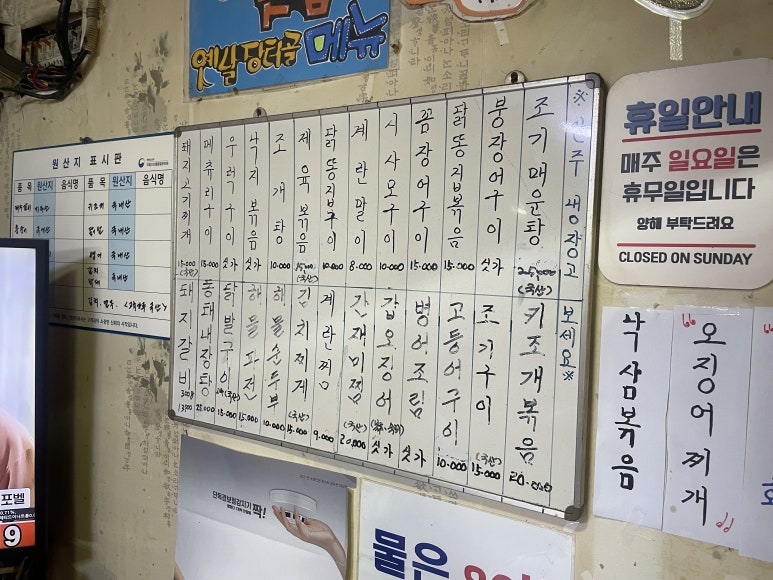 옛날 장터골 메뉴
원산지 표시판
품목 원산지 음식명 품목 원산지 음식명
국내산
국내산
국내산
국내산
※안주 냉장고 보세요※
조기매운탕 25,000 (국산)
붕장어구이 싯가
닭똥집볶음 15.000
꼼장어구이 15.000
시사모구이 10.000
계란말이 8.000
닭똥집구이 10.000
제육볶음 15,000 (국산)
조개탕 10.000
낙지볶음 싯가
우럭구이 싯가
메츄리구이 15.000
돼지고기찌개 15.000 (국산)
키조개볶음 20.000
조기구이 (국산) 15.000
고등어구이 10.000
병어조림 싯가
갑오징어 싯가
간재미찜 (국산) 20,000
계란찜 9.000
김치찌개 (국산) 15.000
해물순두부 10.000
해물파전 15.000
닭발구이 (국산) 15.000
동태내장탕
돼지갈비 300g 13500
휴일안내
매주 일요일은
휴무일입니다
양해 부탁드려요
CLOSED ON SUNDAY
낙삼볶음
오징어찌개
단독경보형감지기
짝!
물은
포벨
9